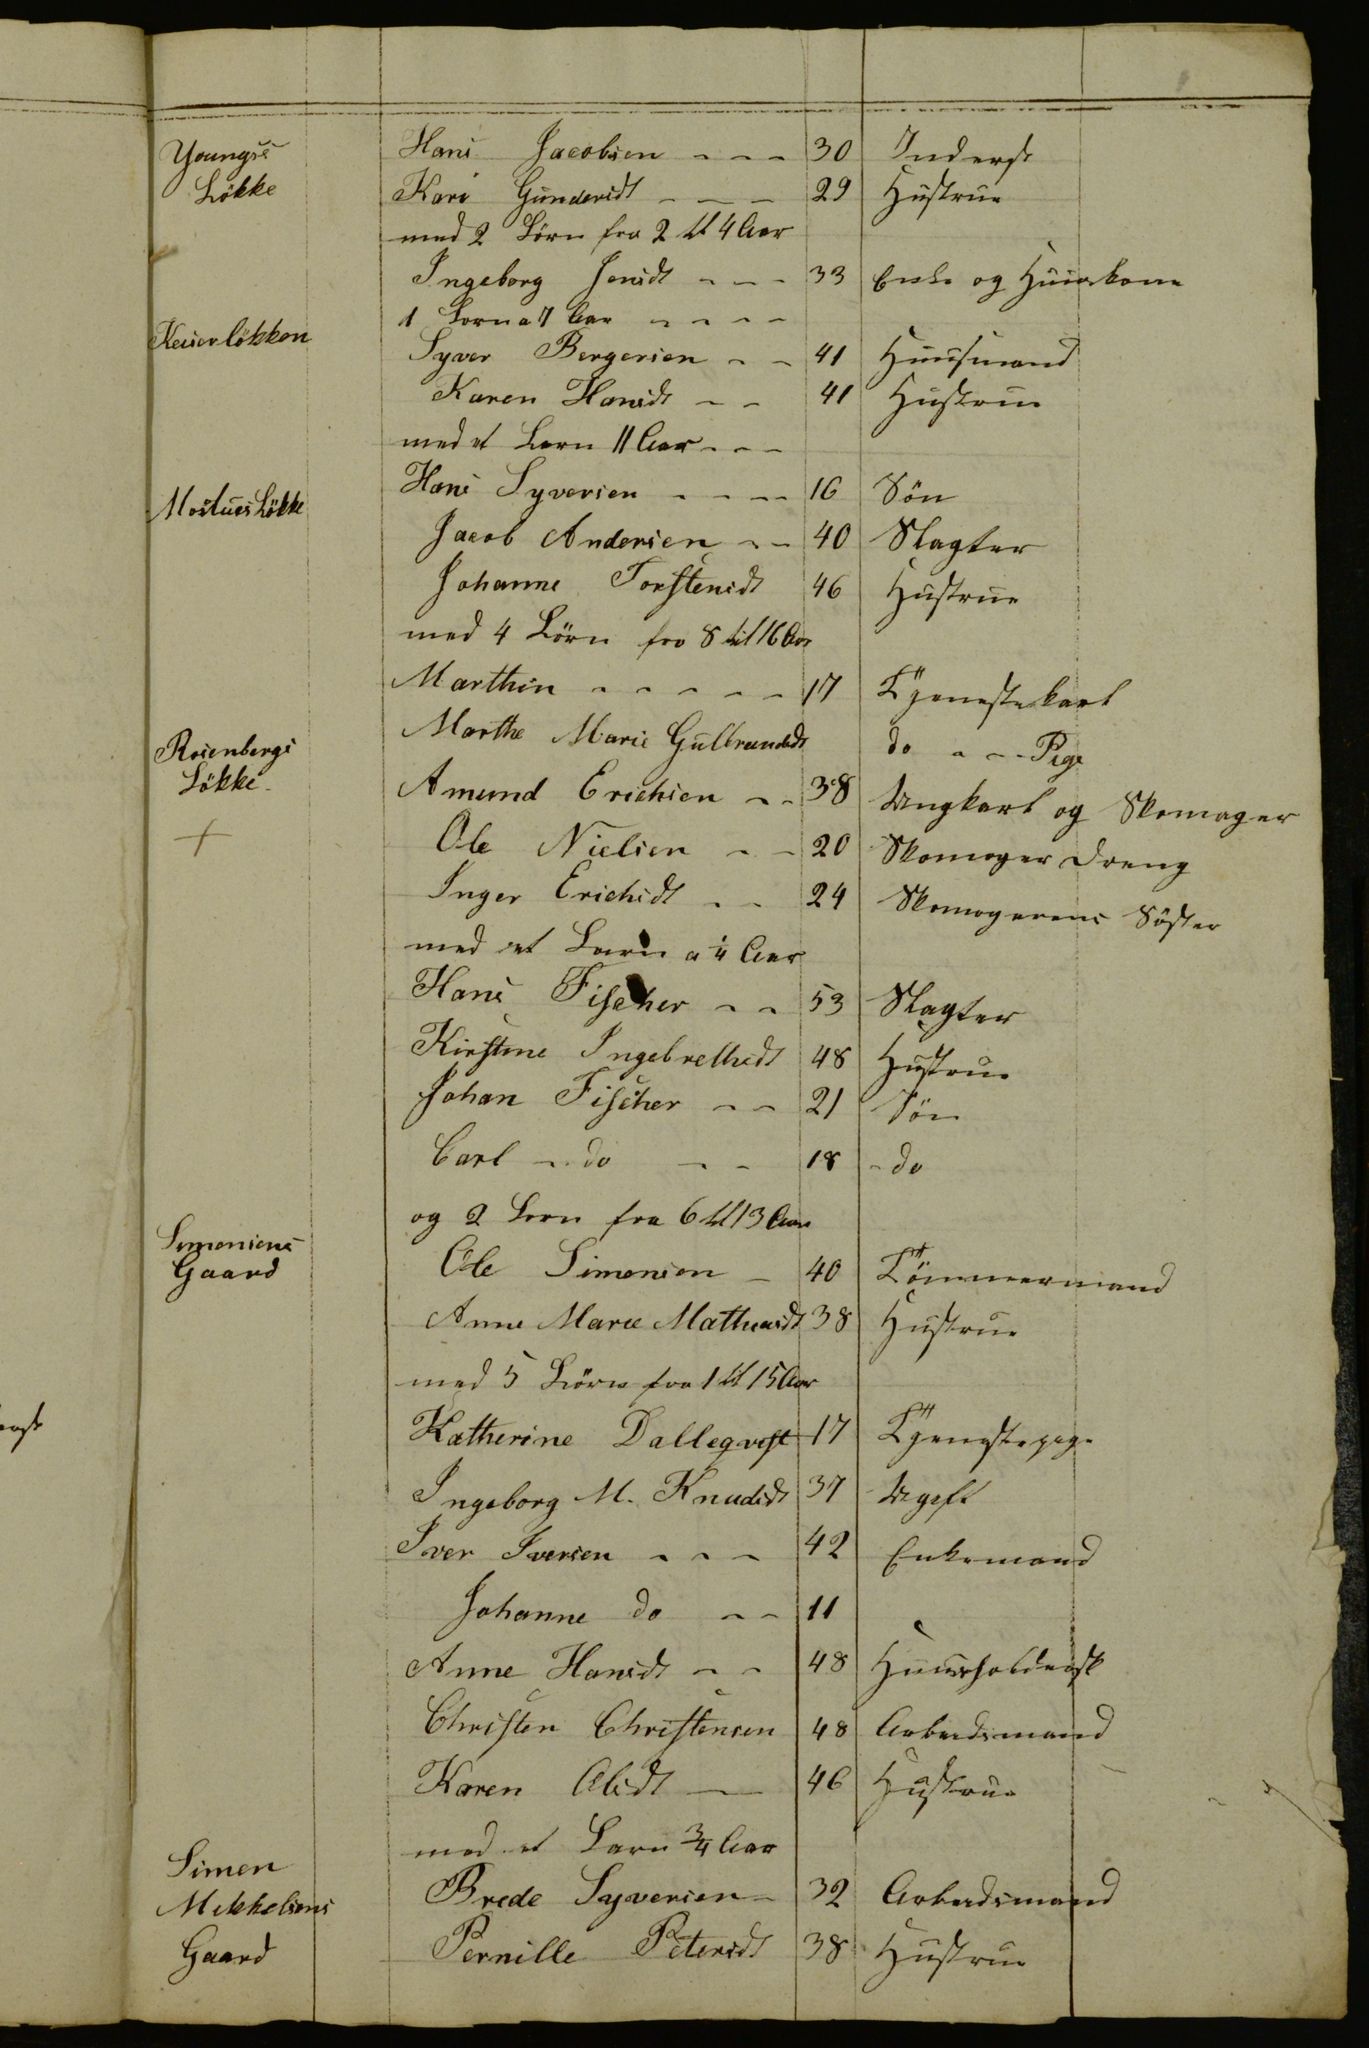 Youngss Hans Jacobsen - - - 30 Inderst
Løkke Kari Gundersdt - - - 29 Hustrue
med 2 Børn fra 2 til 4 Aar
Ingeborg Jensdt - - - 33 Enke og Huuskone
1 Barn a 7 Aar - - - -
Keiserløkken Syver Bergersen - - 41 Huusmand
Karen Hansdt - - 41 Hustrue
med et Barn 11 Aar - - -
Mostues Løkke Hans Syversen - - - - 16 Søn
Jacob Andersen - - 40 Slagter
Johanne Torstensdt 46 Hustrue
med 4 Børn fra 8 til 16 Aar
Marthin - - - - - 17 Tjenestekarl
Marthe Marie Gulbrandsdt do - - - Pige
Rosenbergs
Løkke Amund Erichsen - - 38 Ungkarl og Skomager
Ole Nielsen - - 20 Skomager Dreng
Inger Erichsdt - - 24 Skomagerens Søster
med et Barn a 4 Aar
Hans Fischer - - 53 Slagter
Kirstine Ingebrethsdt 48 Hustrue
Johan Fischer - - 21 Søn
Carl - do - - 18 - do
og 2 Børn fra 6 til 13 Aar
Simensens
Gaard Ole Simensen - 40 Tømmermand
Anne Marie Matheusdt 38 Hustrue
med 5 Børn fra 1 til 15 Aar
Katherine Dalleqvist 17 Tjenestepige
Ingeborg M. Knudsdt 37 Ugift
Iver Iversen - - - 42 Enkemand
Johanne do - - 11
Anne Hansdt - - 48 Huusholdersk
Christen Christensen 48 Arbeidsmand
Karen Olsdt - 46 Hustrue
med et Barn 3/4 Aar
Simen
Mikkelsens Brede Syversen - 32 Arbeidsmand
Gaard Pernille Petersdt 38 Hustrue